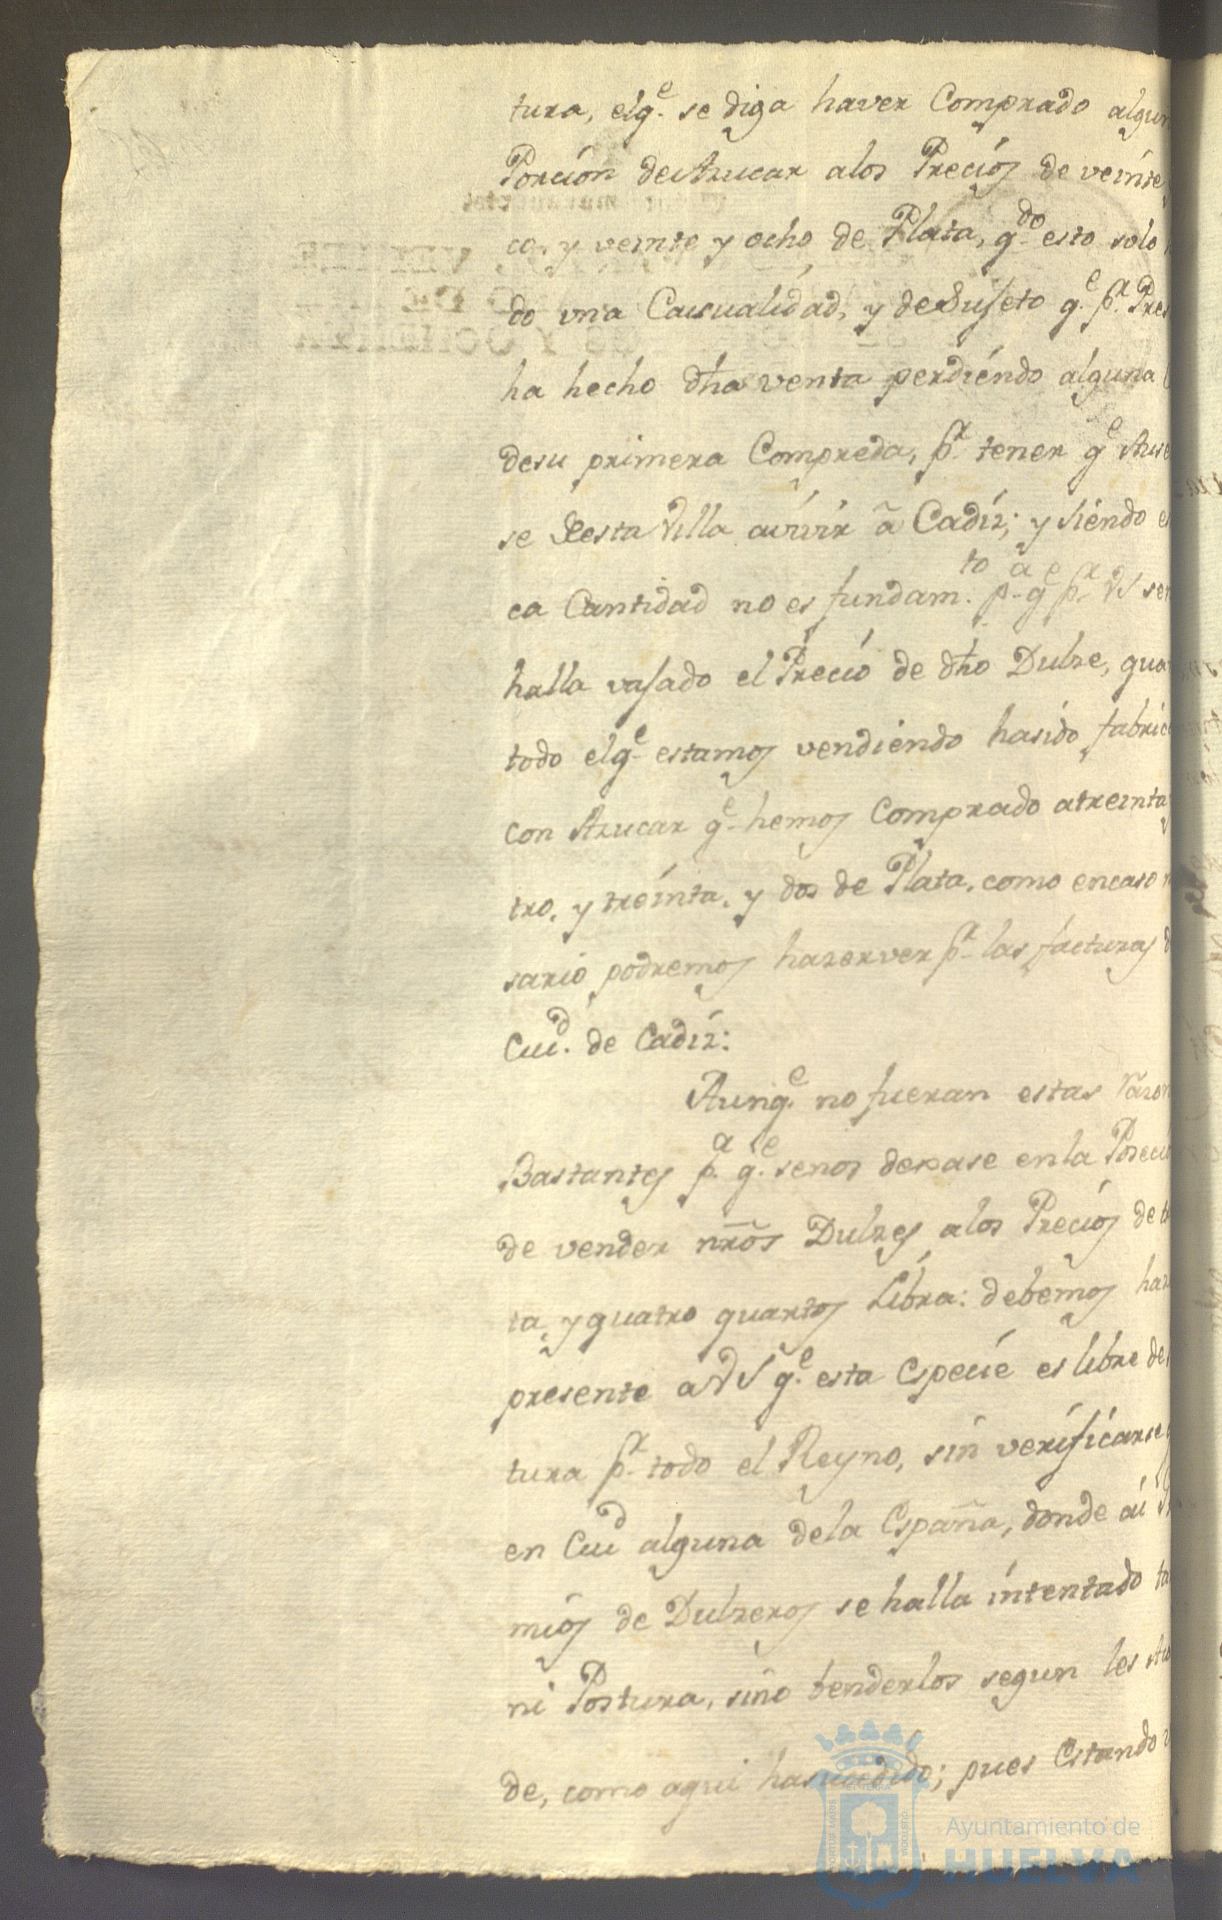 tura, elq.e se diga haver Comprado algun
Porcion de Azucar alos Precios de veinte
co, y veinte y ocho de Plata, q.do esto solo
do vna Casualidad, y de Sujeto q.e p.r Pres
ha hecho dha venta perdiendo alguna
desu primera Compreda, p.r tener q.e Ause
se Desta Villa avivir â Cadiz; y siendo e
ca Cantidad no es fundam.to p.a q.e p.a VS sen
halla vasado el Precio de dho Dulze, qua
todo elq.e estamos vendiendo hasido fabric
con Azucar q.e hemos Comprado atreinta
tro, y treinta, y dos de Plata, como encaso n
sario podremos hazerver p.r las facturas d
Ciu.d de Cadiz:
Aunq.e no fueran estas razon
Bastantes p.a q.e senos dexase en la Posecio
de vender nros Dulzes a los Precios de tr
ta, y quatro quartos Libra: debemos haz
presente a VS q.e esta Especie es libre de
tura p.r todo el Reyno, sin verificarse
en Ciu.d alguna dela España, donde ai
mios de Dulzeros se halla intentado ta
ni Postura, sino benderlos segun les Aco
de, como aqui hasucedido; pues Estando
Ayuntamiento de
HUELVA